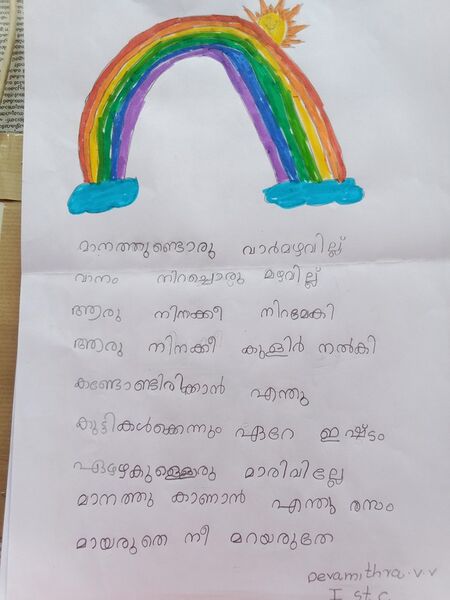 മാനത്തുണ്ടൊരു വാർമഴവില്ല്
വാനം നിറച്ചൊരു മഴവില്ല്
ആരു നിനക്കീ നിറമേകി
ആരു നിനക്കീ കുളിർ നൽകി
കണ്ടോണ്ടിരിക്കാൻ എന്തു
കുട്ടികൾക്കെന്നും ഏറേ ഇഷ്ടം
ഏഴഴകുള്ളൊരു മാരിവില്ലേ
മാനത്തു കാണാൻ എന്തു രസം
മായരുതെ നീ മറയരുതേ
Devamithra.v.v
I st c